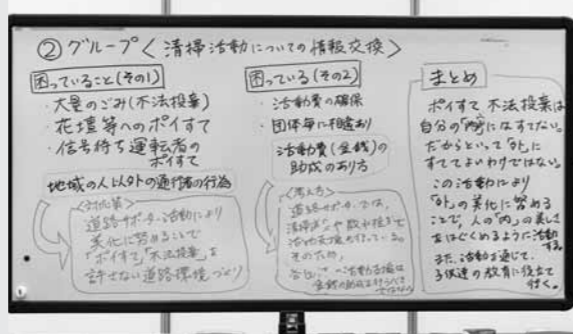 ②グループ〈清掃活動についての情報交換〉
困っていること(その1)
・大量のごみ(不法投棄)
・花壇等へのポイすて
・信号待ち運転者の
ポイすて
地域の人以外の通行者の行為
〈対応策〉
道路サポーター活動により
美化に努めることで
「ポイすて」「不法投棄」を
許さない道路環境づくり
困っている(その2)
・活動費の確保
・団体毎に相違あり
活動費(金銭)の
助成のあり方
〈考え方〉
道路サポーターでは、
清掃
活動支援を行っている。
そのため、
活動支援は
金銭的助成を
まとめ
ポイすて 不法投棄は
自分の「内」にはすてない。
だからといって「外」に
すててよいわけではない。
この活動により
「外」の美化に努める
ことで、人の「内」の美しさ
をはぐくめるように活動
する。
また、活動を通じて、
子供達の教育に役立て
行く。